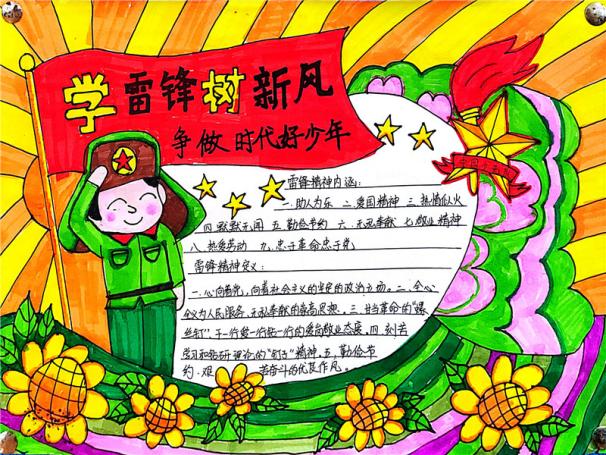 学雷锋树新风
争做时代好少年
雷锋精神内涵:
一.助人为乐 二.爱国精神 三.热情似火
四.默默无闻 五.勤俭节约 六.无私奉献 七.敬业精神
八.热爱劳动 九.忠于革命忠于党
雷锋精神定义:
一.心向着党,向着社会主义的坚定的政治立场。二.全心
全意为人民服务,无私奉献的崇高思想。三.甘当革命的"螺
丝钉",干一行爱一行钻一行的爱岗敬业态度。四.刻苦
学习和钻研理论的"钉子"精神。五.勤俭节
约.艰苦奋斗的优良作风。